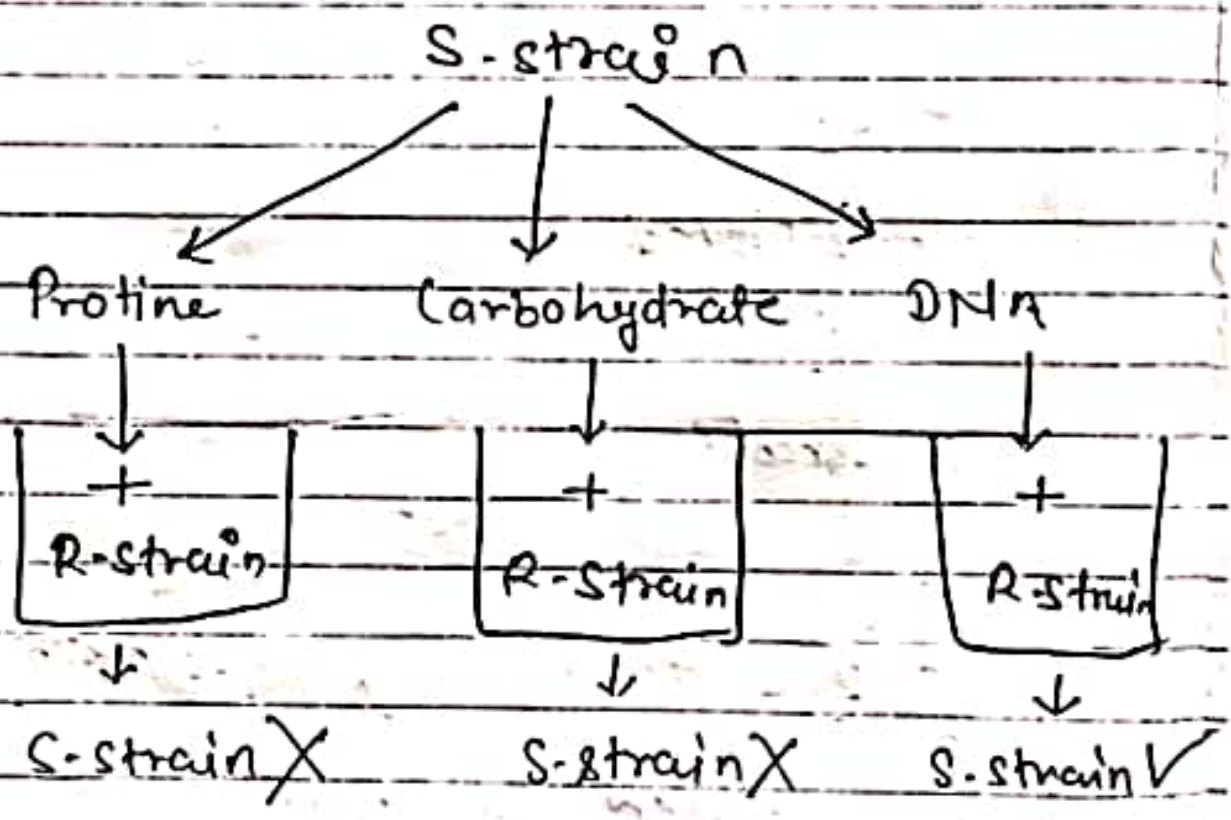 S-strain
Protine Carbohydrate DNA
+ + +
R-strain R-Strain R-Strain
S-strain X S-strain X S-strain ✓